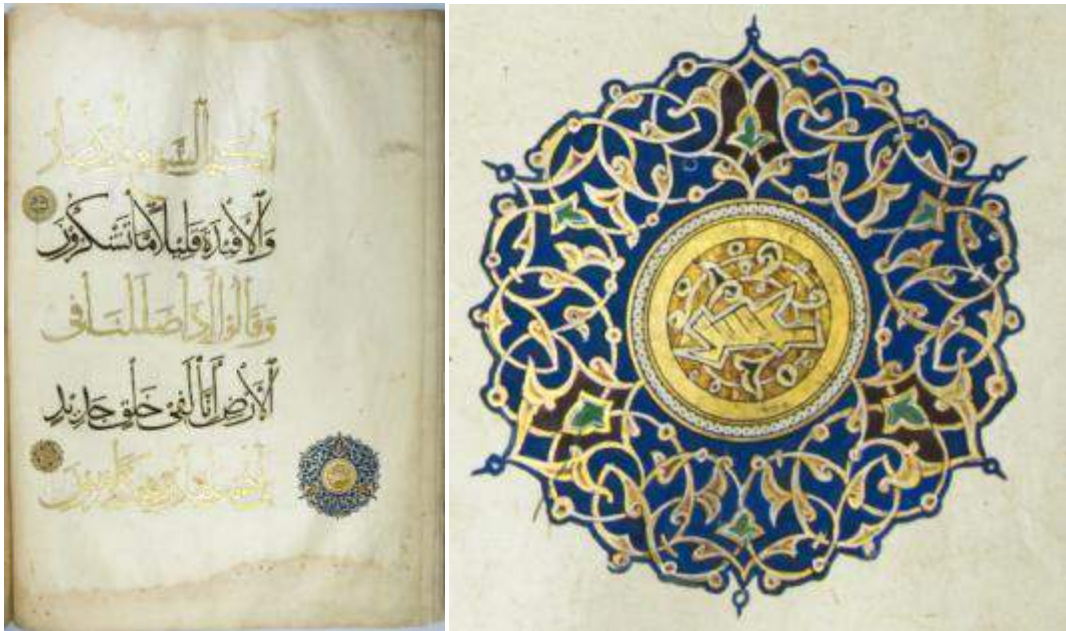 لكم السمع والأبصار
والأفئدة قليلا ما تشكرون
وقالوا أإذا ضللنا في
الأرض أإنا لفي خلق جديد
بل هم بلقاء ربهم كافرون